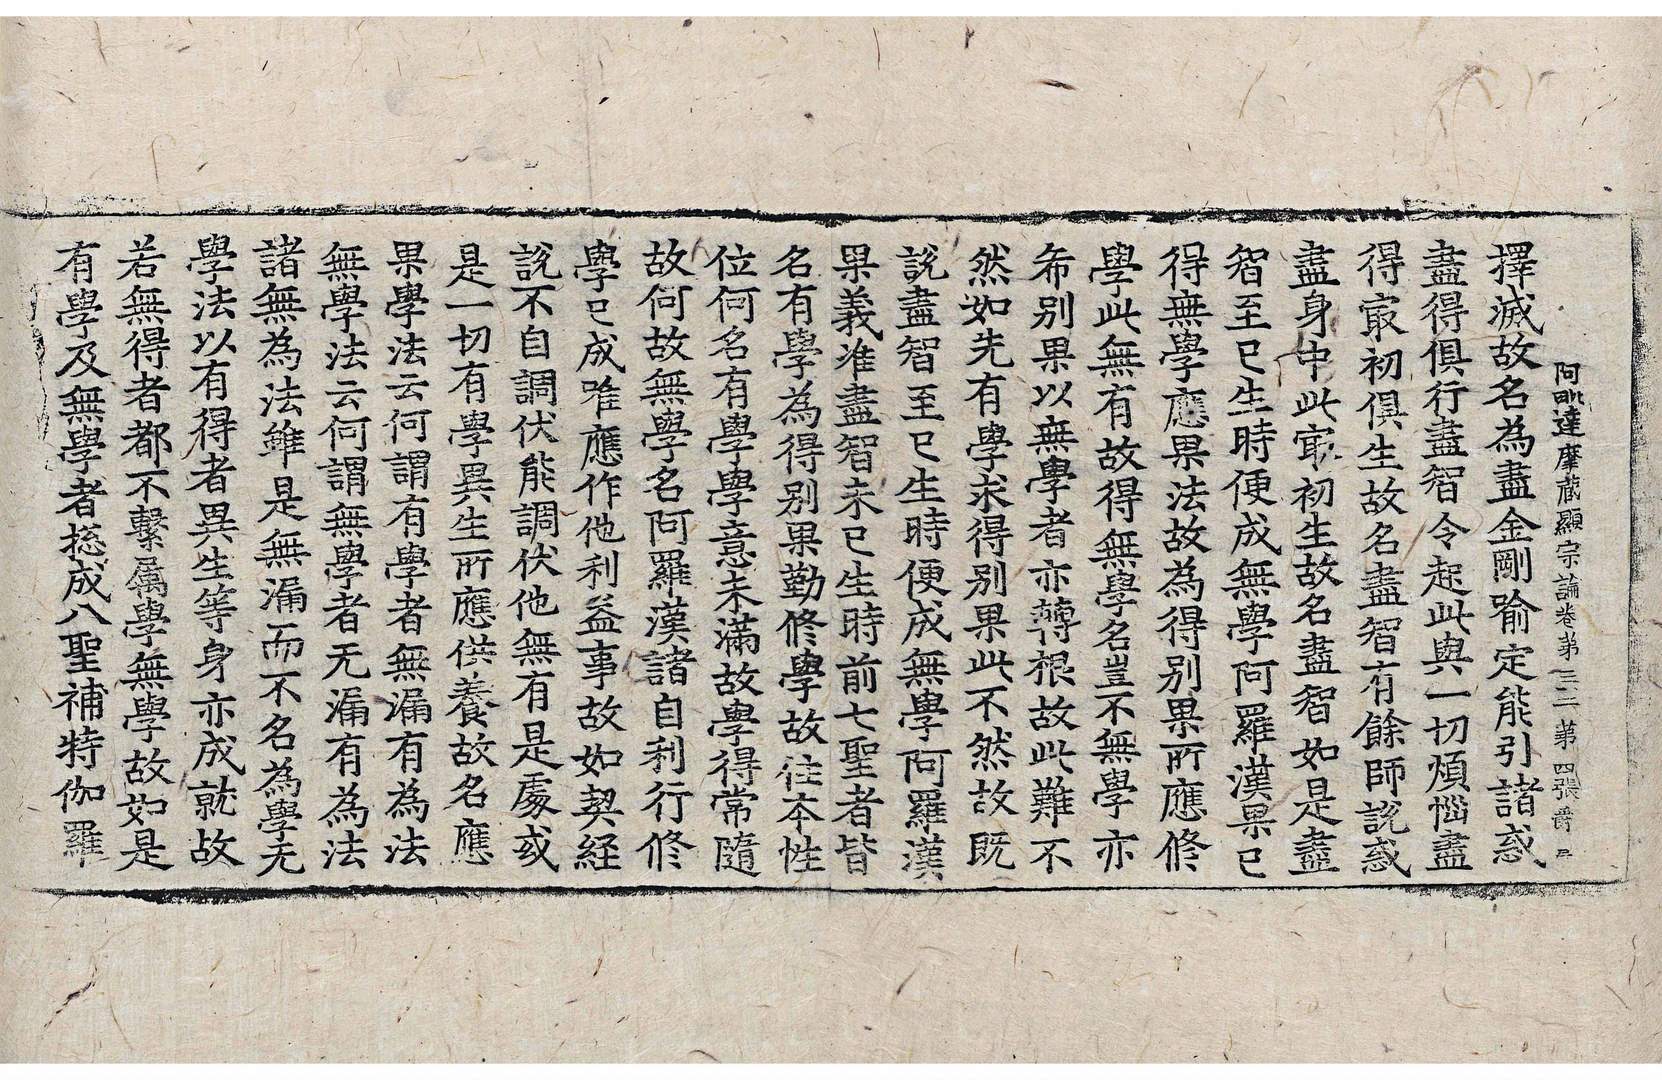 阿毗達磨藏顯宗論卷第三二 第四張 爵
擇滅故名為盡金剛喻定能引諸惑
盡得俱行盡智令起此與一切煩惱盡
得冣初俱生故名盡智有餘師說惑
盡身中此冣初生故名盡智如是盡
智至已生時便成無學阿羅漢果已
得無學應果法故為得別果所應修
學此無有故得無學名豈不無學亦
希別果以無學者亦轉根故此難不
然如先有學求得別果此不然故既
說盡智至已生時便成無學阿羅漢
果義准盡智未已生時前七聖者皆
名有學為得別果勤修學故住本性
位何名有學學意未滿故學得常隨
故何故無學名阿羅漢諸自利行修
學已成唯應作他利益事故如契經
說不自調伏能調伏他無有是處或
是一切有學異生所應供養故名應
果學法云何謂有學者無漏有為法
無學法云何謂無學者无漏有為法
諸無為法雖是無漏而不名為學无
學法以有得者異生等身亦成就故
若無得者都不繫属學無學故如是
有學及無學者捴成八聖補特伽羅